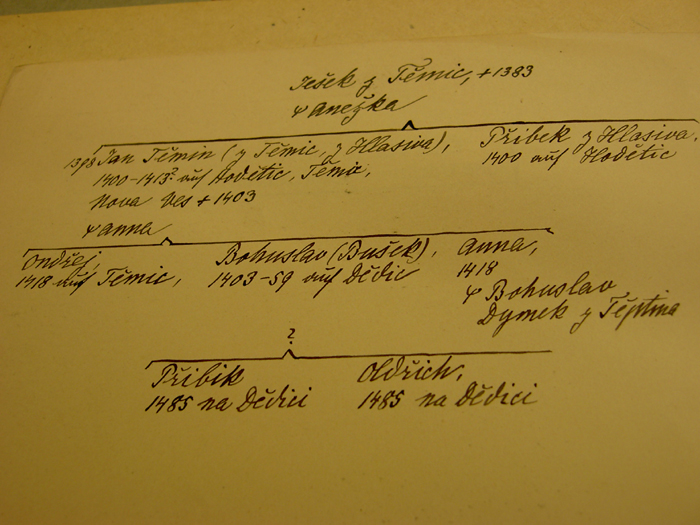 Ješek z Těmic, +1383
⚭ Anežka
1378 Jan Těmin (z Těmic, z Hlasiva),
1400-1413? auf Hodětic, Těmic,
Nova Ves +1403
⚭ Anna
Přibek z Hlasiva.
1400 auf Hodětic
Ondřej,
1418 auf Těmic,
Bohuslav (Bušek),
1403-59 auf Dědic
Anna,
1418
⚭ Bohuslav
Dymek z Těptina
?
Přibik
1485 na Dědici
Oldřich,
1485 na Dědici